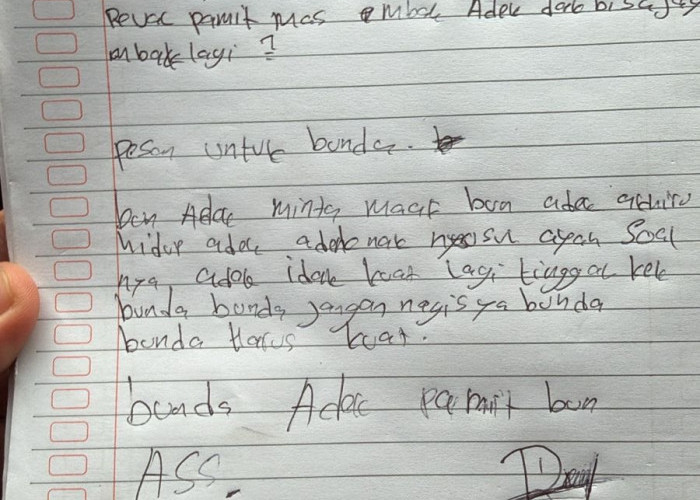 Revac pamit mas embak Adek dak bisa
mbak lagi ?
pesan untuk bunda.
bun Adek minta maaf bun adek akhiri
hidup adek adek nak nyusul ayah Soal
nya, adek idak kuat lagi tinggal kek
bunda bunda jangan nagis ya bunda
bunda Harus kuat.
bunda Adek pamit bun
ASS.